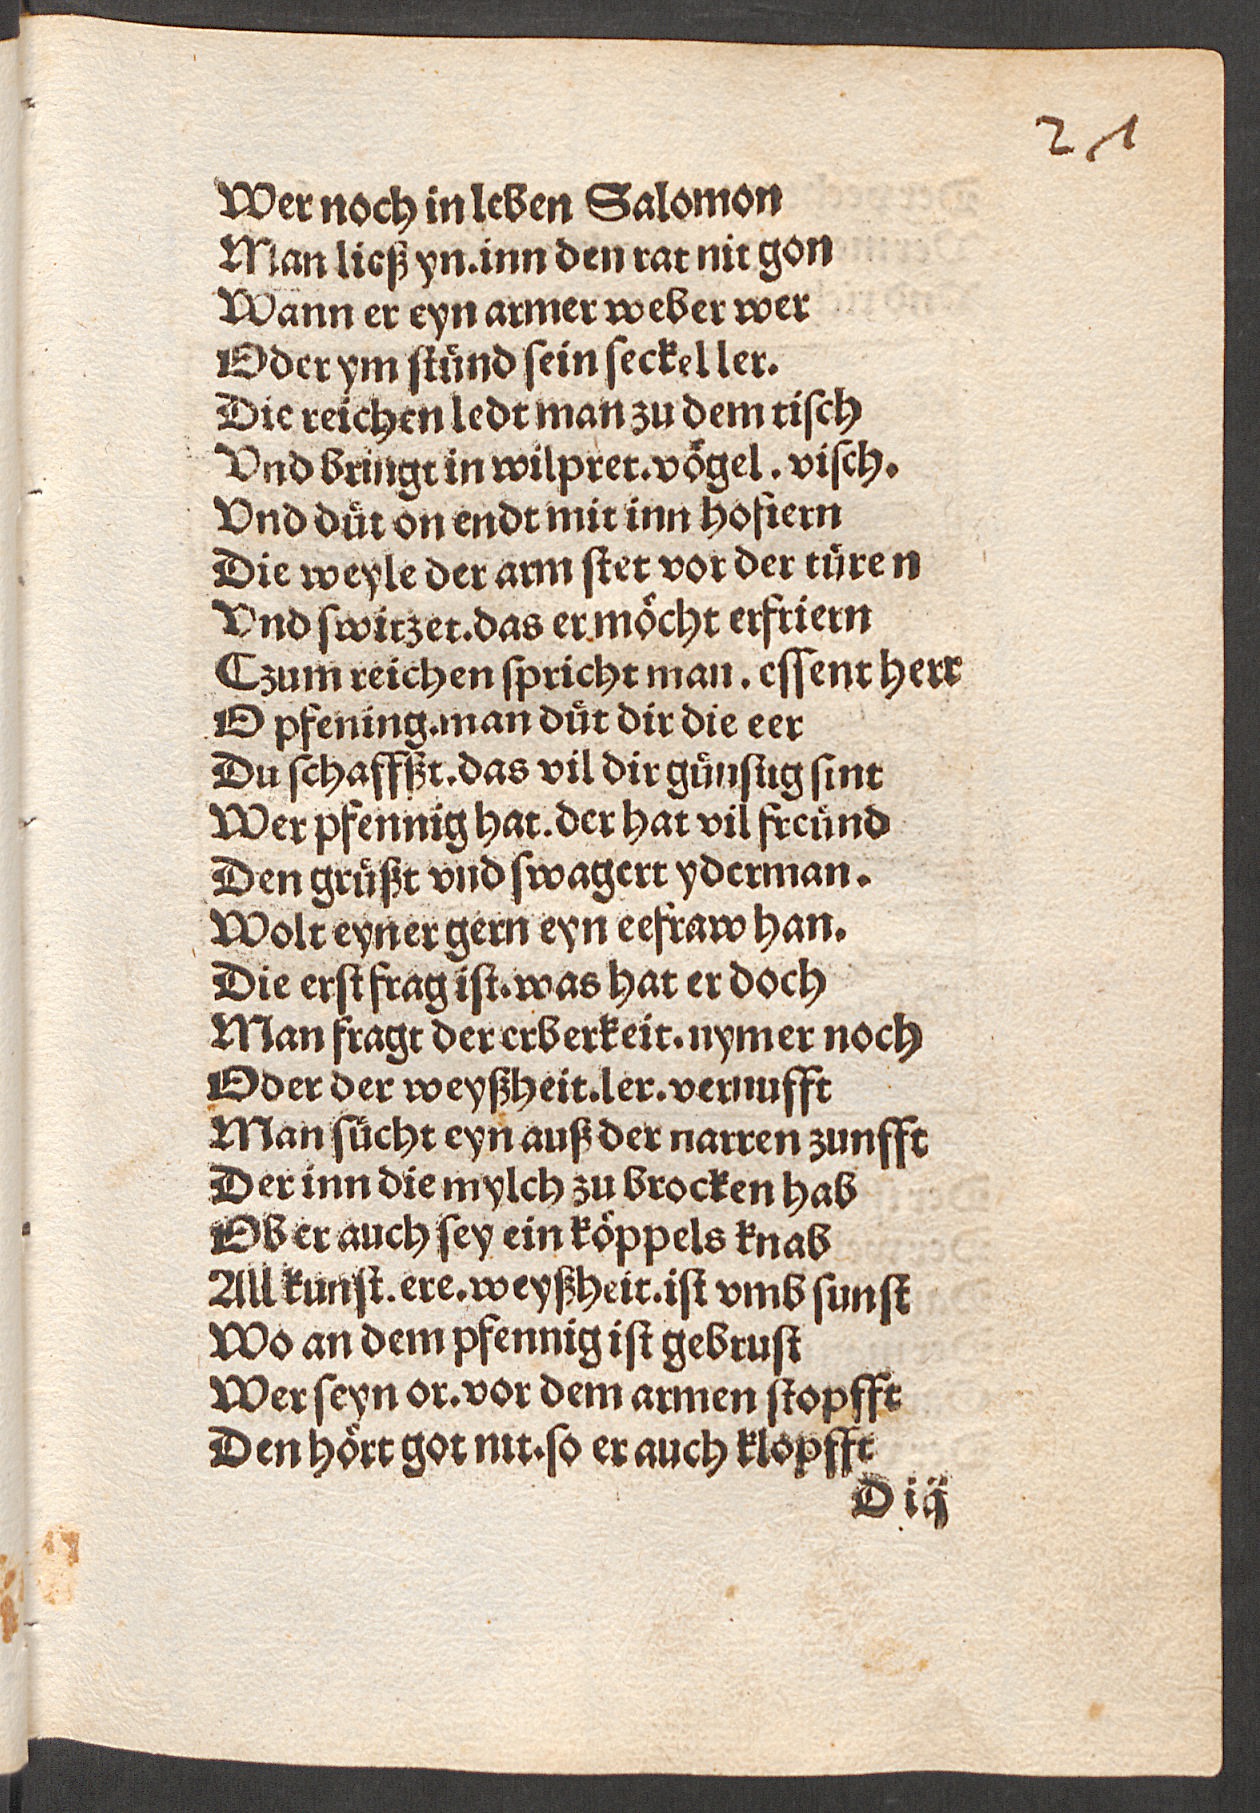 21
Wer noch in leben Salomon
Man ließ yn.inn den rat nit gon
Wann er eyn armer weber wer
Oder ym stünd sein seckel ler.
Die reichen ledt man zu dem tisch
Vnd bringt in wilpret.vögel.visch.
Vnd düt on endt mit inn hofiern
Die weyle der arm stet vor der türen
Vnd switzet.das er möcht erfriern
Czum reichen spricht man.essent herr
O pfening.man düt dir die eer
Du schaffßt.das vil dir günstig sint
Wer pfennig hat.der hat vil freünd
Den grüßt vnd swagert yderman.
Wolt eyner gern eyn eefraw han.
Die erst frag ist.was hat er doch
Man fragt der erberkeit.nymer noch
Oder der weyßheit.ler.vernufft
Man sücht eyn auß der narren zunfft
Der inn die mylch zu brocken hab
Ob er auch sey ein köppels knab
All kunst.ere.weyßheit.ist vmb sunst
Wo an dem pfennig ist gebrust
Wer seyn or.vor dem armen stopfft
Den hört got nit.so er auch klopfft
D iij